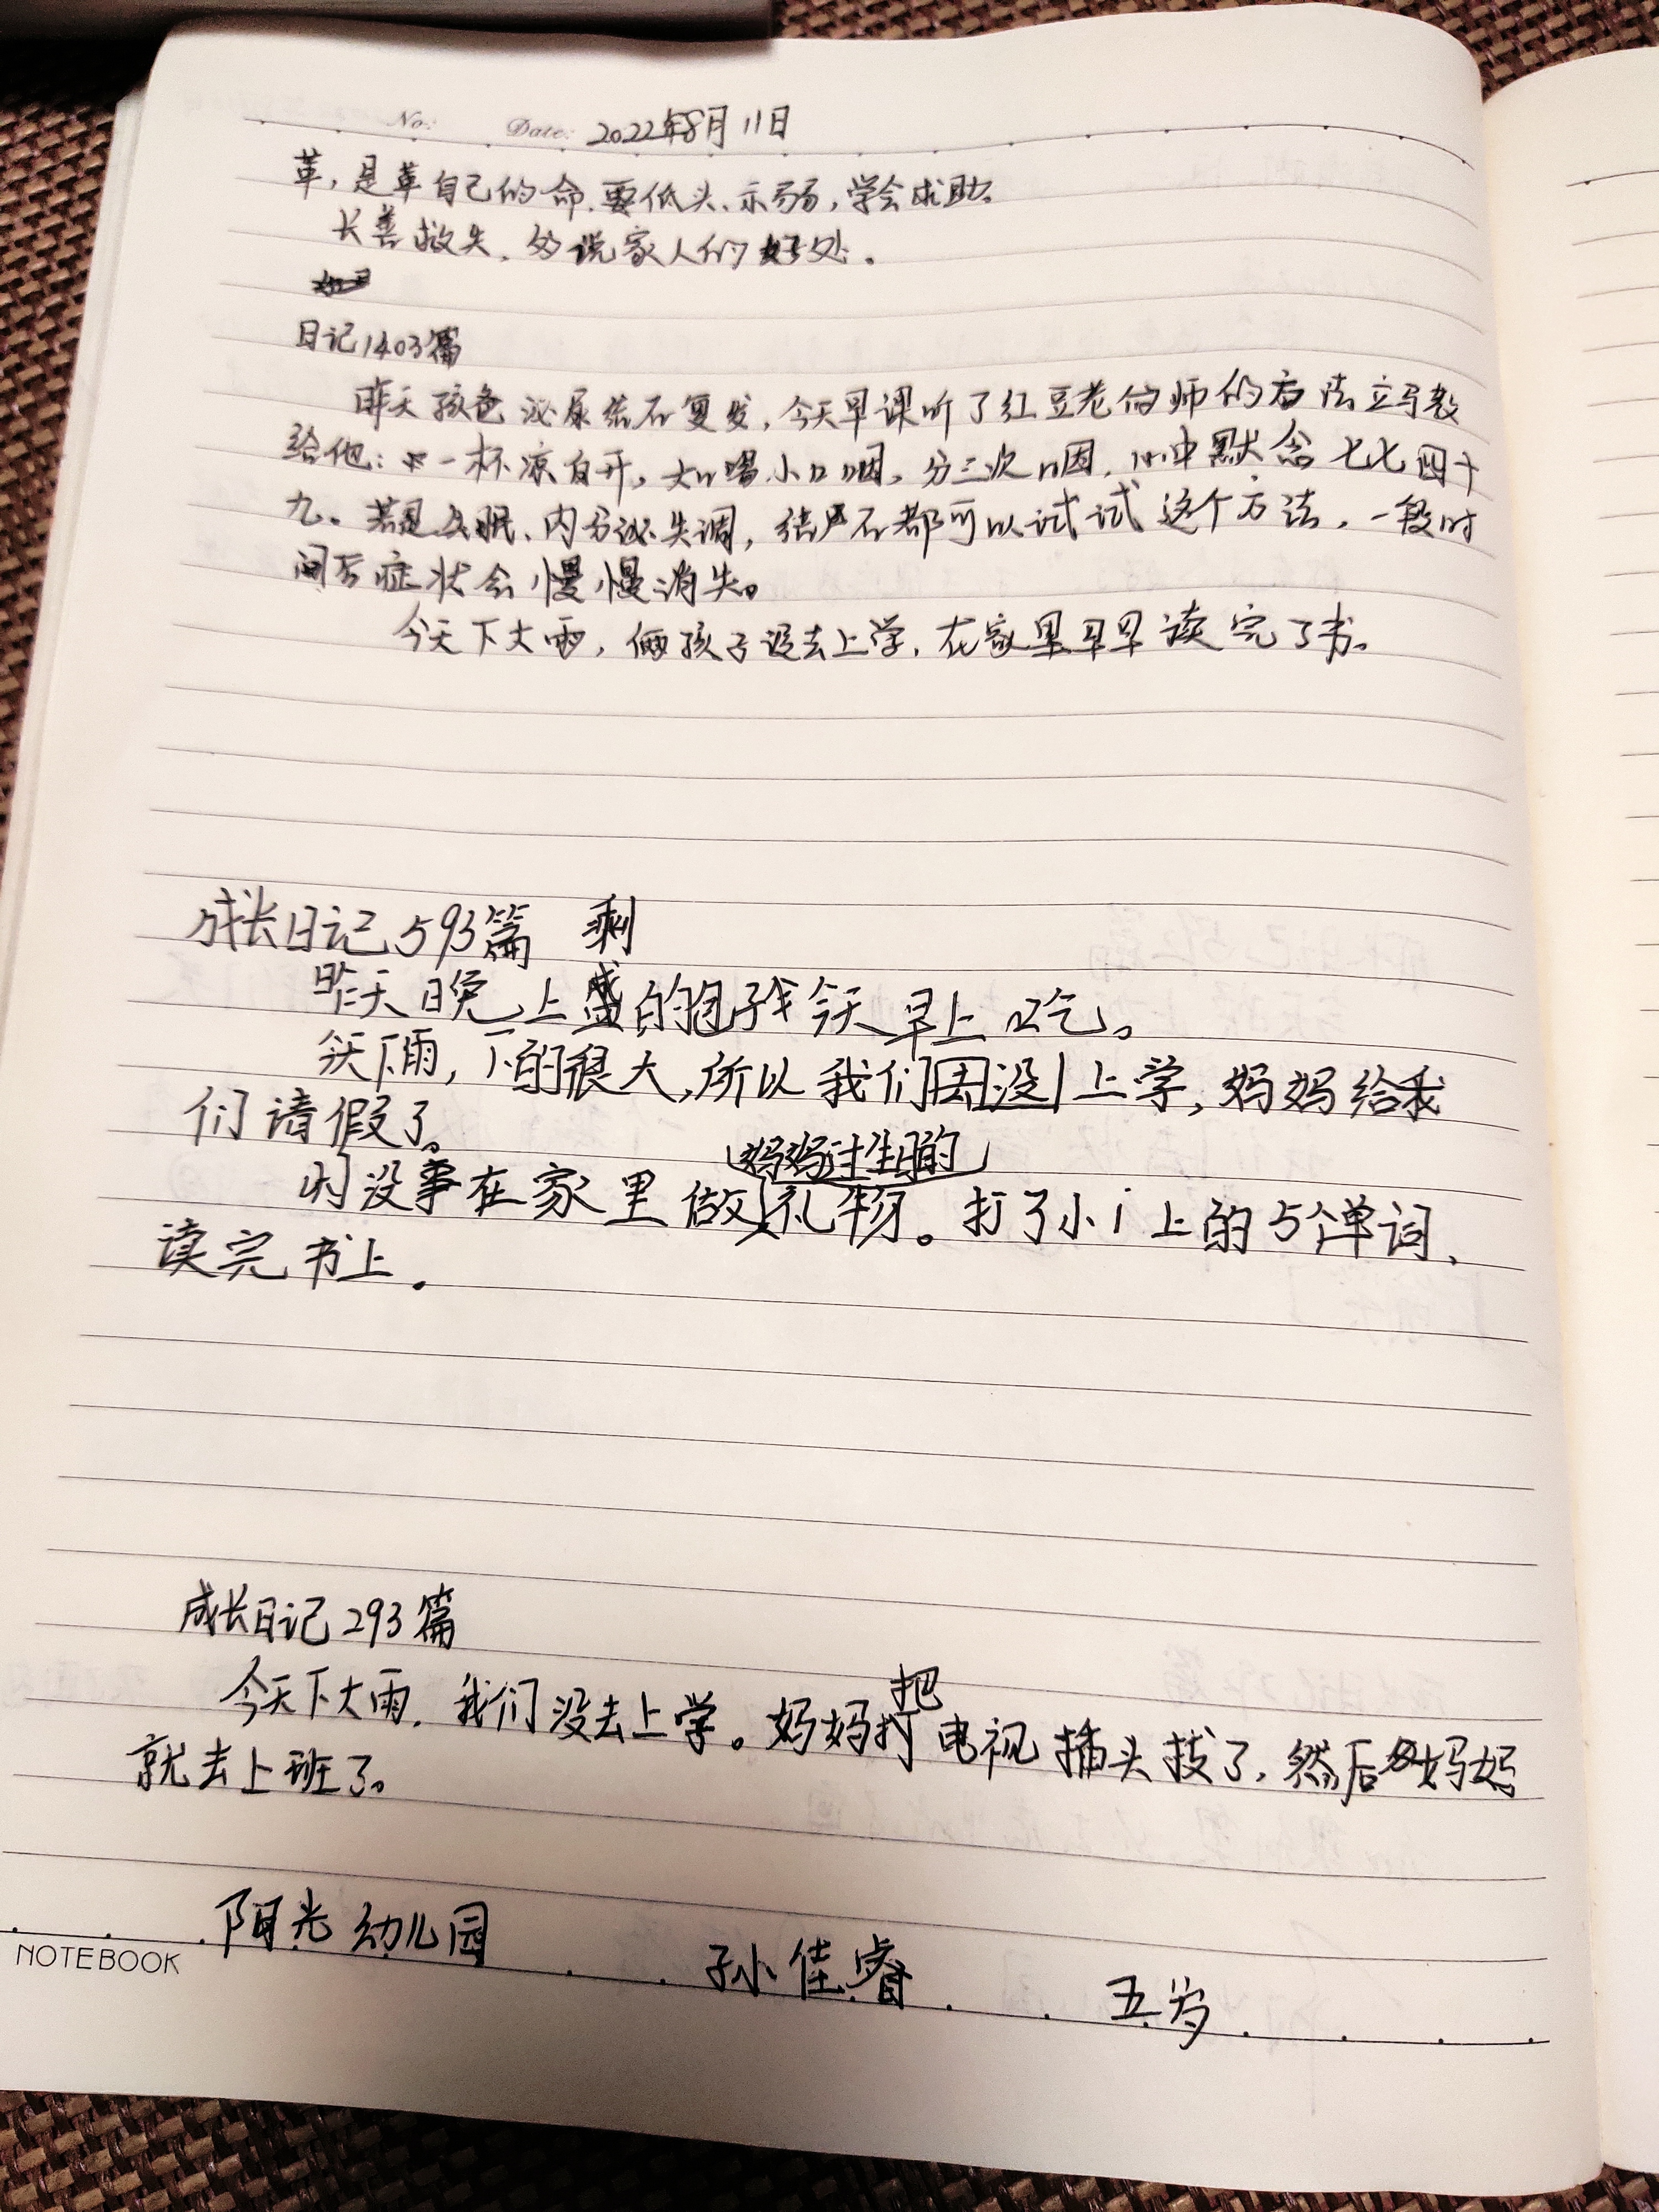 No: Date: 2022年8月11日
革,是革自己的命.要低头、示弱,学会求助。
长善救失.多说家人的好处。
日记1403篇
昨天孩爸泌尿结石复发,今天早课听了红豆老师的方法立马教
给他:一杯凉白开,大口喝小口咽,分三次咽.心中默念七七四十
九。若是失眠、内分泌失调,结石都可以试试这个方法,一段时
间后症状会慢慢消失。
今天下大雨,俩孩子没去上学,在家里早早读完了书。
成长日记593篇 剩
昨天晚上盛的包子我今天早上吃。
今天下雨,下的很大,所以我们没上学,妈妈给我
们请假了。
妈妈过生日的
没事在家里做礼物。打了小i上的5个单词、
读完书上.
成长日记293篇
把
今天下大雨.我们没去上学。妈妈打电视插头拔了,然后妈妈
就去上班了。
阳光幼儿园 孙佳睿 五岁
NOTEBOOK